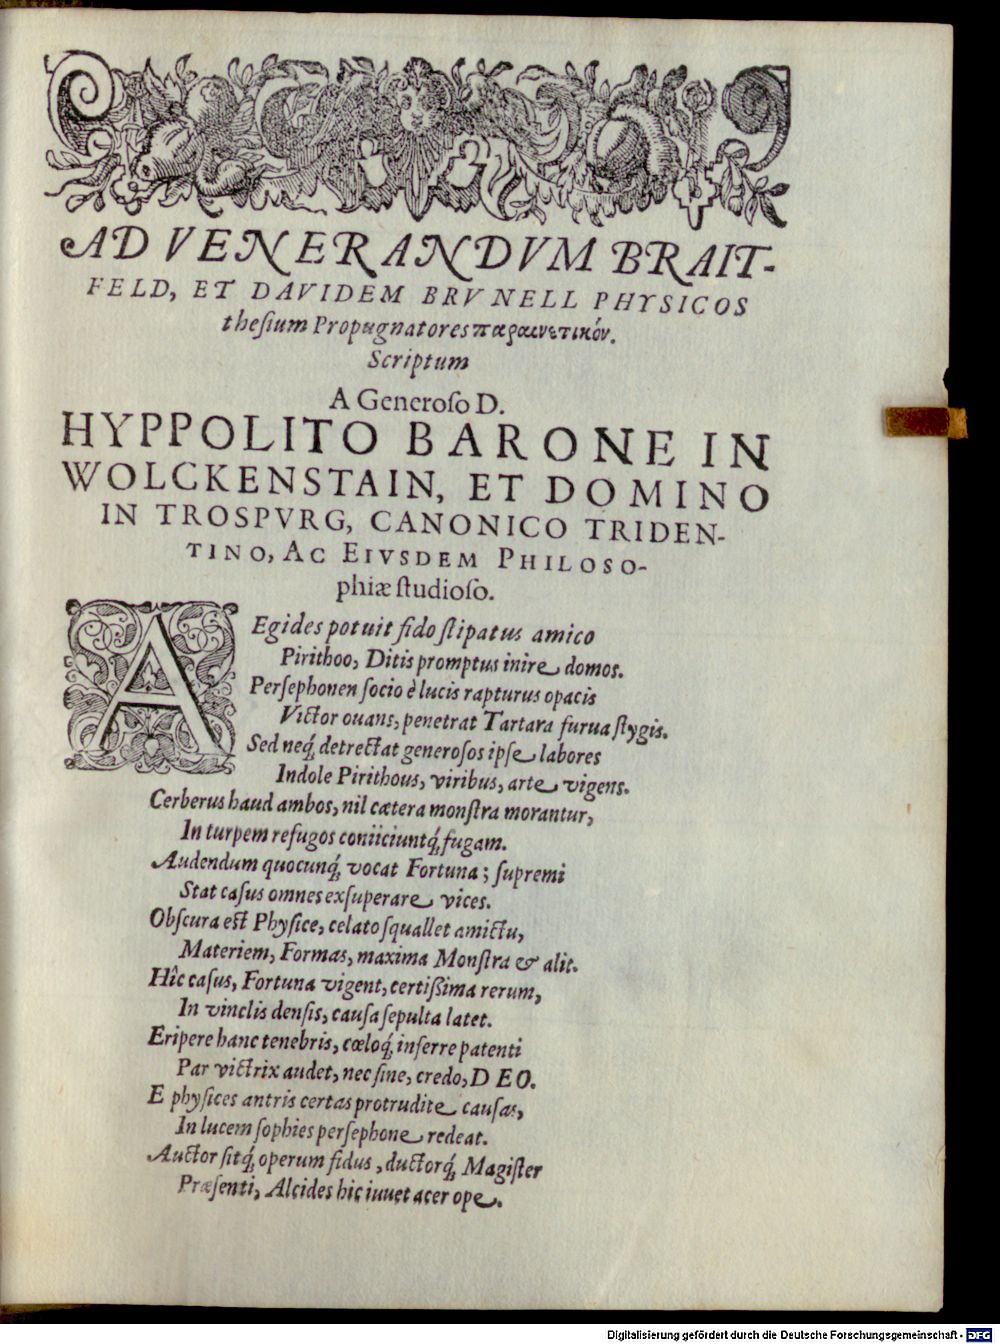 AD VENERANDVM BRAIT-
FELD, ET DAVIDEM BRVNELL PHYSICOS
theſium Propugnatores παραινετικόν.
Scriptum
A Generoſo D.
HYPPOLITO BARONE IN
WOLCKENSTAIN, ET DOMINO
IN TROSPVRG, CANONICO TRIDEN-
TINO, AC EIVSDEM PHILOSO-
phiæ ſtudioſo.
AEgides potuit fido ſtipatus amico
Pirithoo, Ditis promptus inire domos.
Perſephonen ſocio è lucis rapturus opacis
Victor ouans, penetrat Tartara furua ſtygis.
Sed neq́; detrectat generoſos ipſe labores
Indole Pirithous, viribus, arte vigens.
Cerberus haud ambos, nil cætera monſtra morantur,
In turpem refugos coniiciuntq́; fugam.
Audendum quocunq́; vocat Fortuna; ſupremi
Stat caſus omnes exſuperare vices.
Obſcura eſt Phyſice, celato ſquallet amictu,
Materiem, Formas, maxima Monſtra & alit.
Hîc caſus, Fortuna vigent, certißima rerum,
In vinclis denſis, cauſa ſepulta latet.
Eripere hanc tenebris, cœloq́; inferre patenti
Par victrix audet, nec ſine, credo, DEO.
E phyſices antris certas protrudite cauſas,
In lucem ſophies perſephone redeat.
Auctor ſitq́; operum fidus, ductorq́; Magiſter
Præſenti, Alcides hic iuuet acer ope.
Digitalisierung gefördert durch die Deutsche Forschungsgemeinschaft - DFG